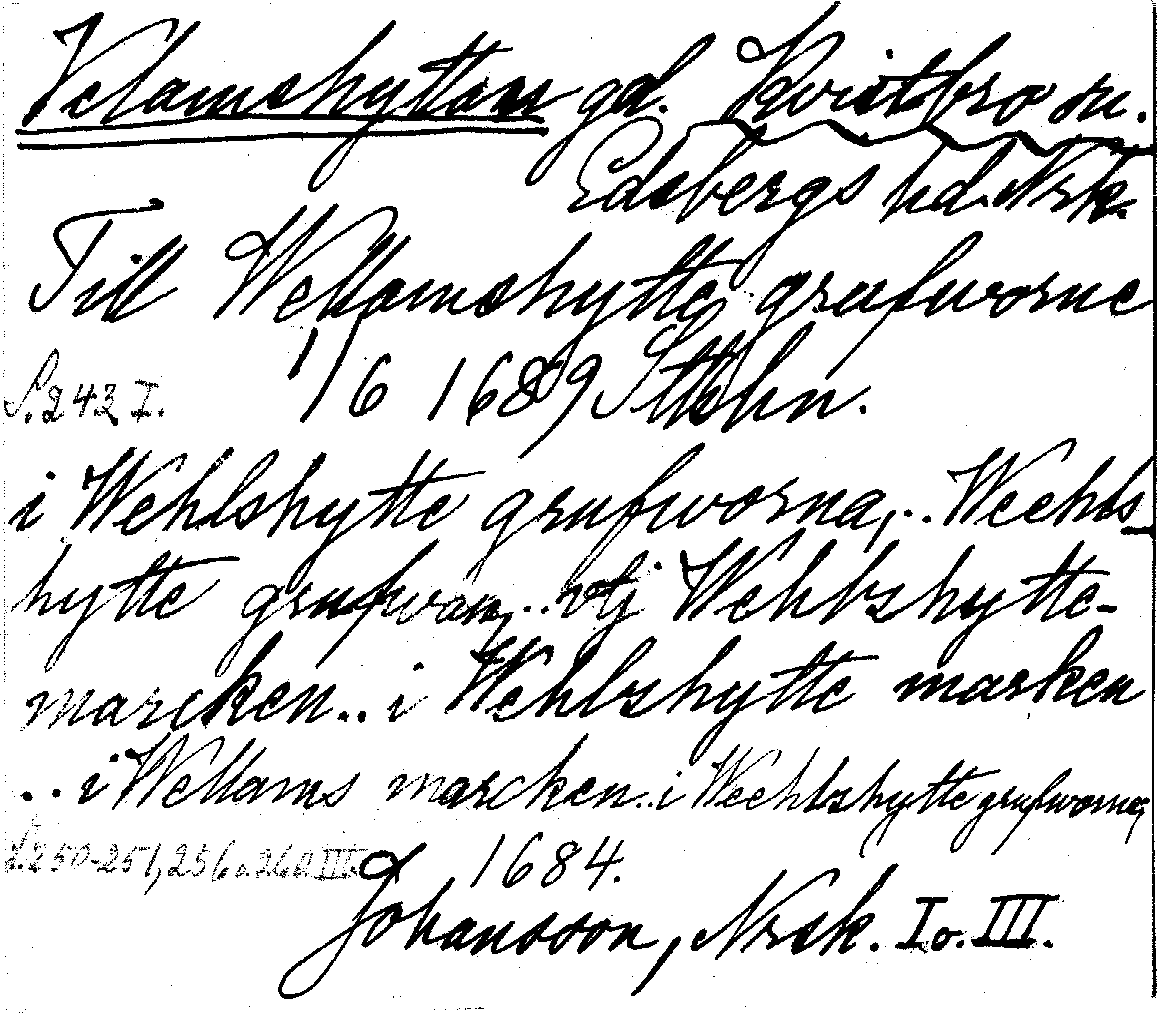 Velamshyttan gd. Kvistbro sn.
Edsbergs hd. Nrk.
Till Wellamshytte grufworne
S. 243 I. 1/6 1689 Sthlm.
i Wehlshytte grufworna, .. Weehls-
hytte grufwan, .. vtj Wehlszhytte-
marcken .. i Wehlszhytte marken
.. i Wellams marcken .. i Weehlszhytte grufworna,
S. 250-251, 256 o. 260 III. 1684.
Johansson, Nrsk. I o. III.